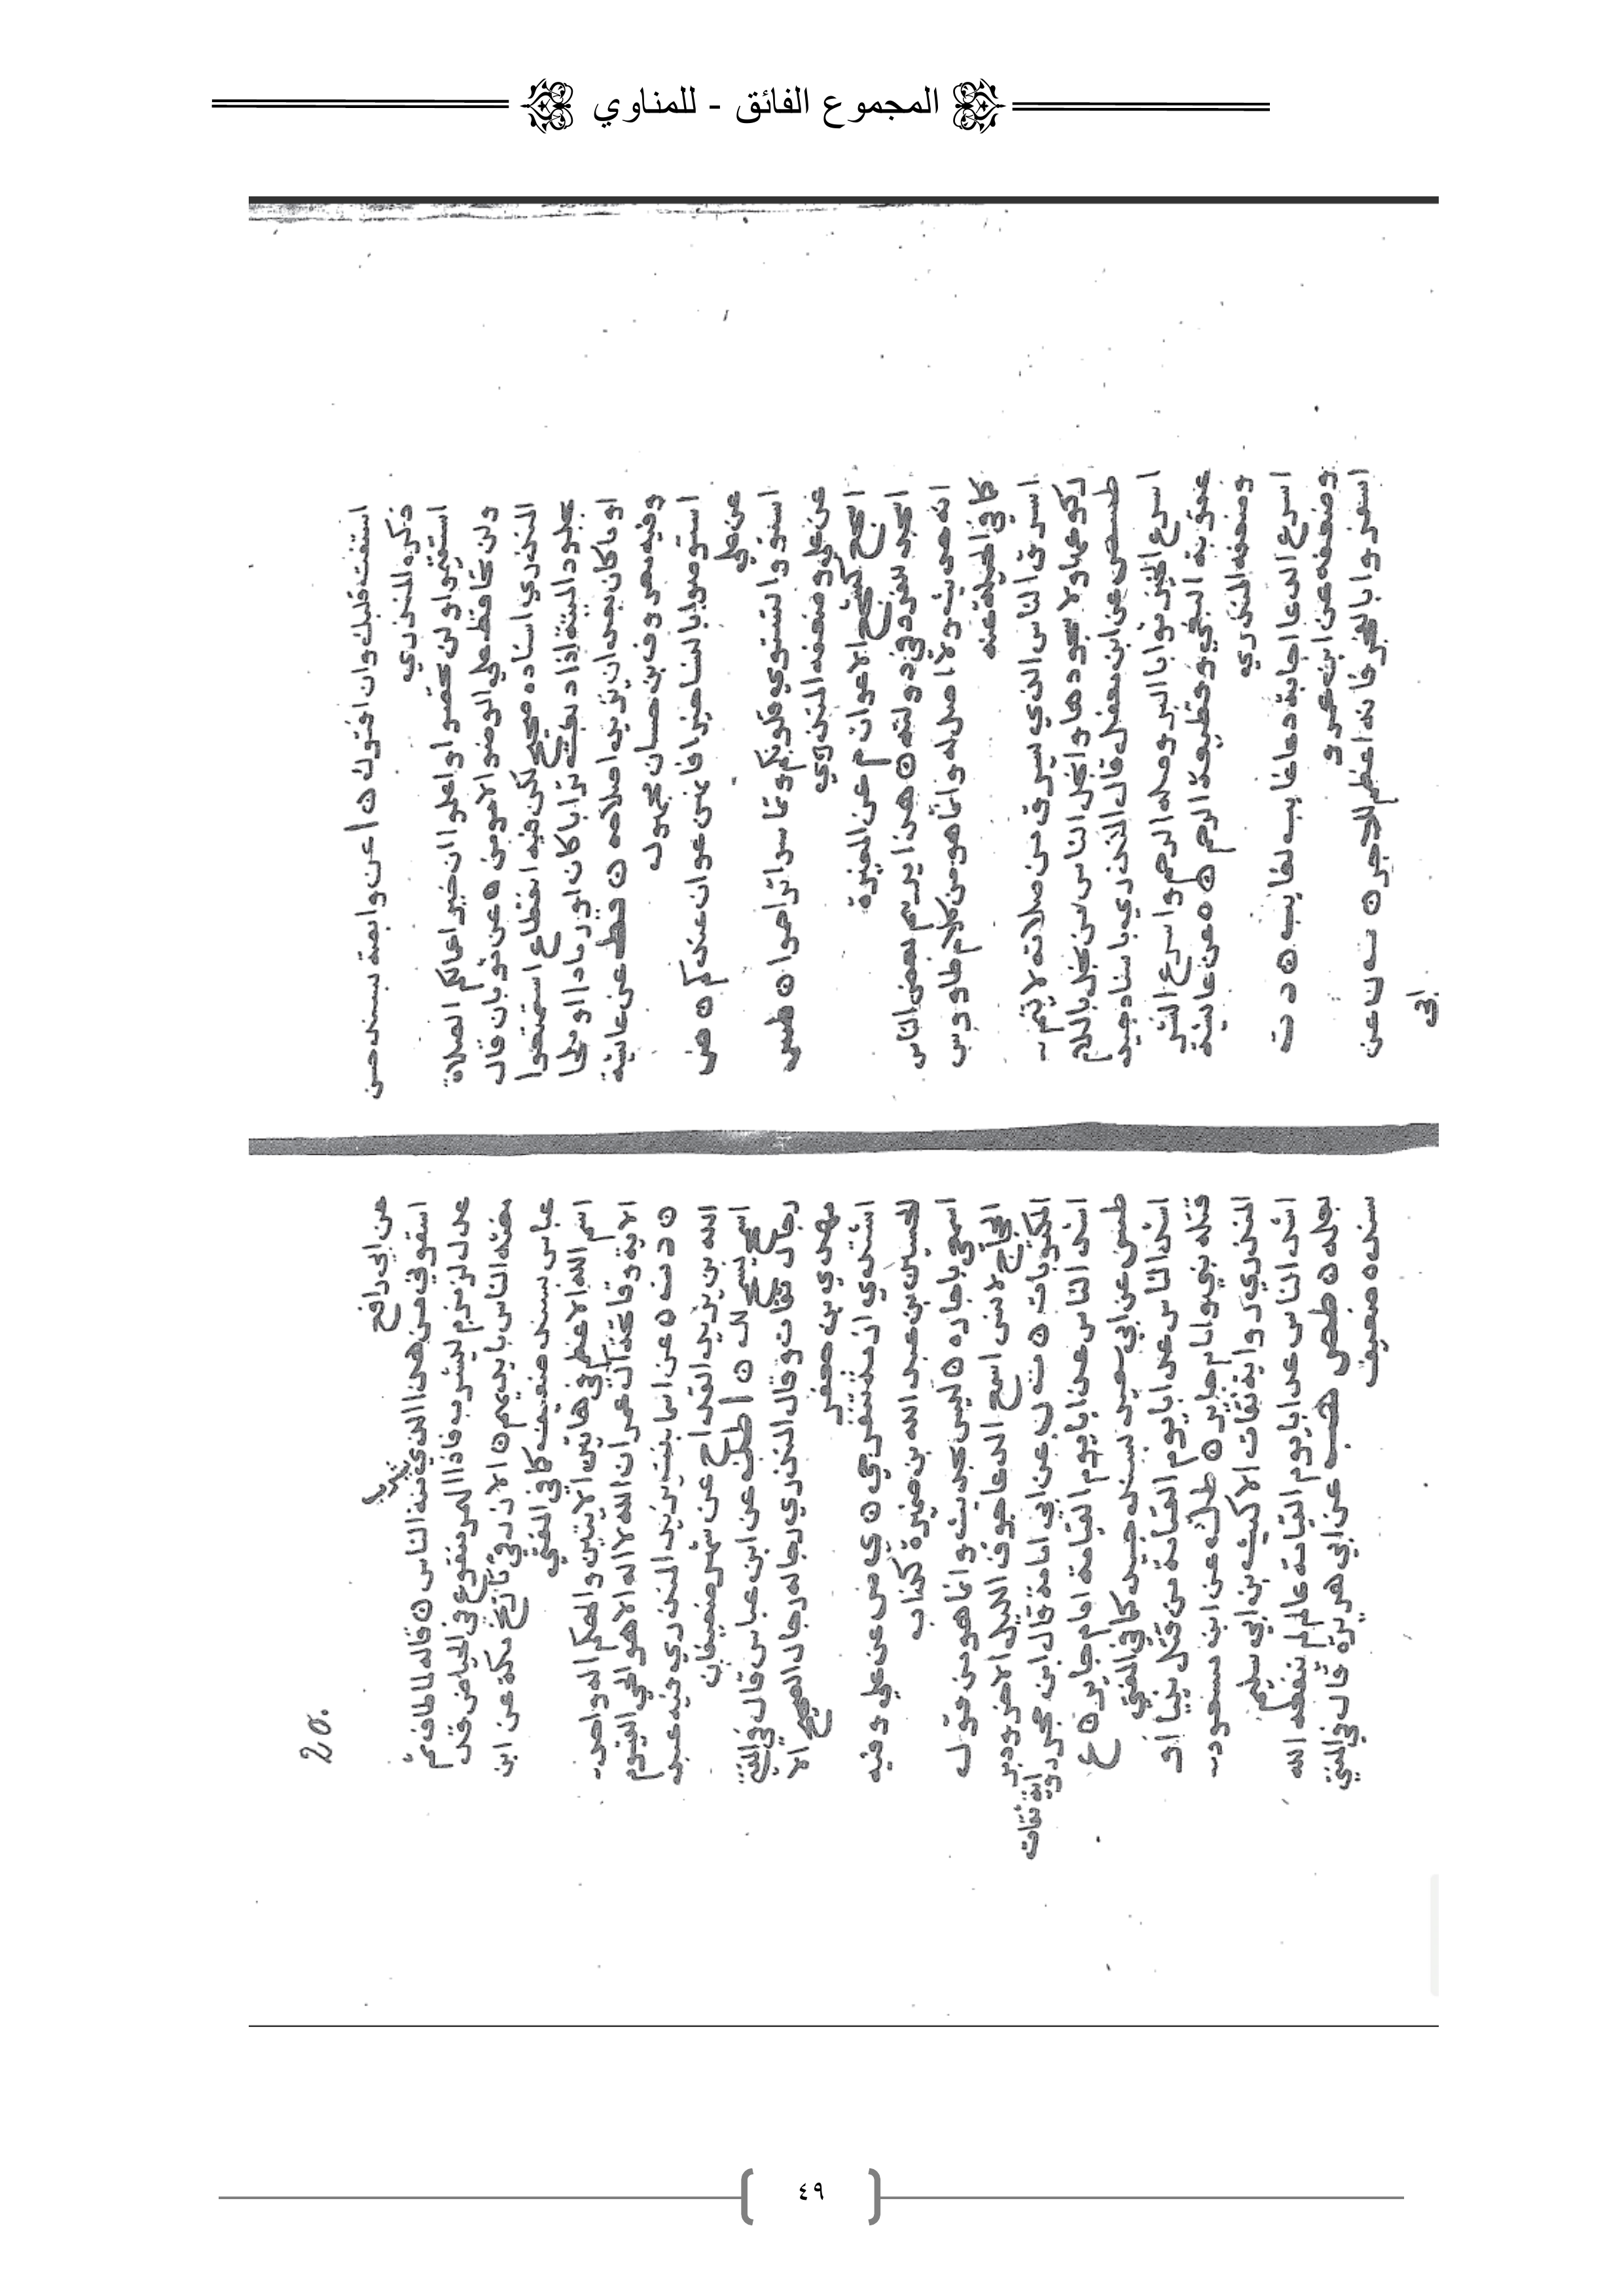 المجموع الفائق - للمناوي
استفت قلبك وان افتوك ه ا عن وابصة بسند حسن
ذكره المنذري
استقيموا ولن تحصوا واعلموا ان خير اعمالكم الصلاة
ولن يحافظ علي الوضو الا مومن ه عن ثوبان قال
المنذري اسناده صحيح لكن فيه انقطاع استمتعوا
بجلود الميتة اذا دبغت ترابا كان او رمادا او ملحا
او ما كان بعد ان يزيد صلاحه ه قط عن عايشة
وفيه معروف بن حسان مجهول
استوصوا بالنسا خيرا فانهن عوان عندكم ه
عن علي
استووا تستوي قلوبكم وتماسوا تراحموا ه طس
عن علي وضعفه المنذري
اسجع كسجع الاعراب م عن المغيرة
اسجد للقرد في دولته ه هذا بعض الناس
انه حديث ولا اصل له وانما هو من كلام طاووس
كما في الحلية عنه
اسرق الناس الذي يسرق من صلاته لا يتم
ركوعها ولا سجودها وابخل الناس من بخل بالسلام
طس ص عن ابن مغفل قال المنذري باسناد جيد
اسرع الخير ثوابا البر وصلة الرحم واسرع الشر
عقوبة البغي وقطيعة الرحم ه ه عن عايشة
وضعفه المنذري
اسرع الدعا اجابة دعا غايب لغايب ه د ت
وضعفه عن ابن عمرو
اسفروا بالفجر فانه اعظم للاجر ه ت ن عن
ابي
20.
عن ابي رافع
اسقوني من هذا الذي منه الناس ه قاله لما طاف ثم
عدل لزمزم ليشرب فاذا التمر منقوع في الحياض قد
مغثه الناس بايديهم ه الازرقي في تاريخ مكة عن ابن
عباس بسند ضعيف كما في المغني
اسم الله الاعظم في هاتين الايتين والهكم اله واحد
الاية وفاتحة ال عمران الله لا اله الا هو الحي القيوم
ه د ت ه عن اسما بنت يزيد المنذري فيه عبيد
الله بن يزيد القداح عن شهر ضعيفان
اسمح يسمح لك ه ا طك عن ابن عباس قال في
رجال ثقات وقال المنذري رجاله رجال الصحيح الا
مهدي بن جعفر
اشتدي ازمة تنفرجي ه عن علي وفيه
الحسين بن عبد الله بن ضميرة كذاب
اسمعي يا جاره ه ليس بحديث وانما هو من قول
الحجاج لانس اسمع الدعا جوف الليل الاخر ودبر
المكتوبات ه ت ن عن ابي امامة قال ابن حجر رواته ثقات
اشد الناس عذابا يوم القيامة امام جاير ه ع
طس عن ابي سعيد بسند حسن كما في المغني
اشد الناس عذابا يوم القيامة من قتل نبيا او
قتله نبي وامام جاير ه طك عن ابن مسعود
المنذري رواته ثقات الا ليث بن ابي سليم
اشد الناس عذابا يوم القيامة عالم لم ينفعه الله
بعلمه ه طص هب عن ابي هريرة قال في المغني
سنده ضعيف
٤٩